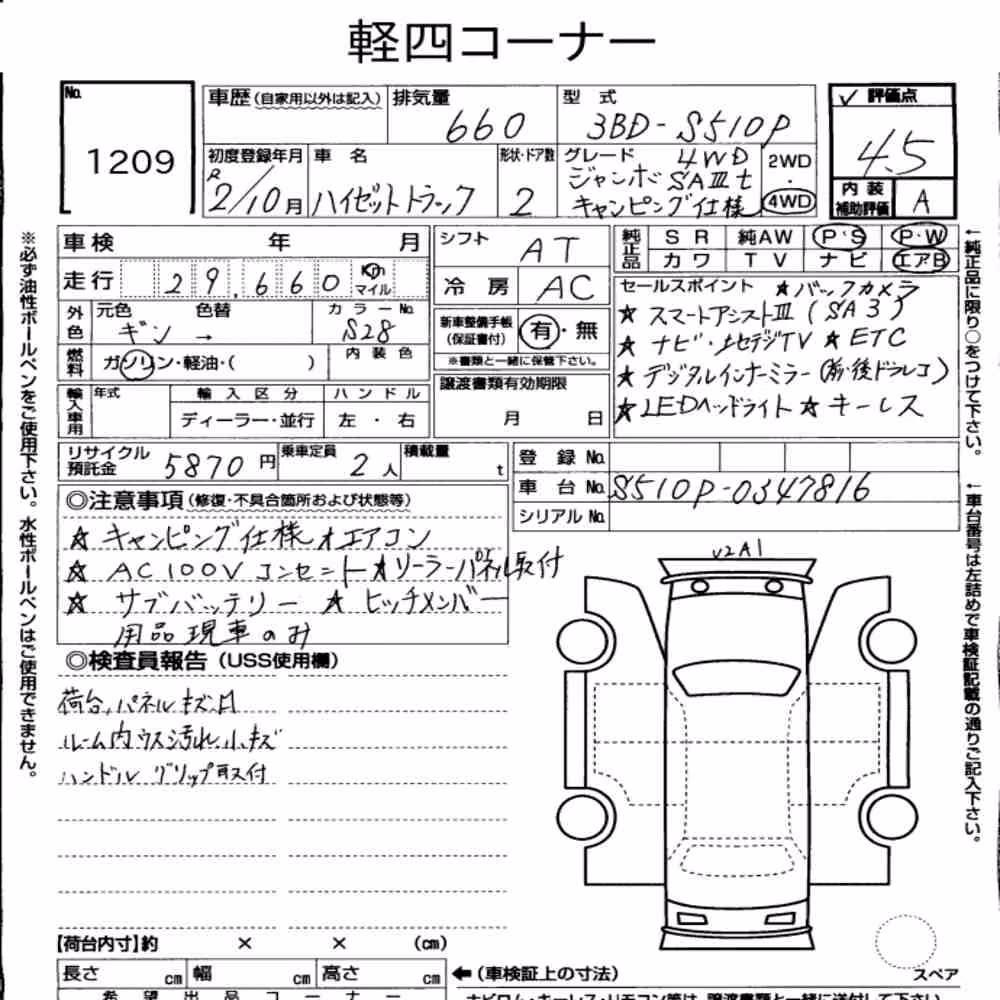 軽四コーナー
No. 1209
車歴(自家用以外は記入) 排気量 660
型式 3BD-S510P
✓ 評価点 4.5
内装補助評価 A
初度登録年月 R2/10月
車名 ハイゼットトラック
形状・ドア数 2
グレード 4WD
ジャンボSAⅢt
キャンピング仕様
2WD・4WD
車検 年 月
走行 29,660 Km マイル
外色 元色 ギン → 色替 カラーNo. S28
燃料 ガソリン・軽油・( ) 内装色
輸入車用 年式 輸入区分 ディーラー・並行 ハンドル 左・右
シフト AT
冷房 AC
新車整備手帳(保証書付) 有・無
※書類と一緒に保管下さい。
譲渡書類有効期限
月 日
純正品 SR 純AW P・S P・W
カワ TV ナビ エアB
セールスポイント ★バックカメラ
★ スマートアシストⅢ(SA3)
★ ナビ・地デジTV ★ ETC
★ デジタルインナーミラー(前後ドラレコ)
★ LEDヘッドライト ★ キーレス
リサイクル預託金 5870円 乗車定員 2人 積載量 t
登録No.
車台No. S510P-0347816
シリアルNo.
◎注意事項(修復・不具合箇所および状態等)
★ キャンピング仕様 ★エアコン
★ AC100Vコンセント ★ソーラーパネル取付
★ サブバッテリー ★ ヒッチメンバー
用品現車のみ
◎検査員報告(USS使用欄)
荷台、パネルキズ凹
ルーム内ウス汚れ、小キズ
ハンドル グリップ取付
U2A1
【荷台内寸】約 × × (cm)
長さ cm 幅 cm 高さ cm
←(車検証上の寸法)
スペア
希望出品コーナー
※必ず油性ボールペンをご使用下さい。水性ボールペンはご使用できません。
←純正品に限り○をつけて下さい。
←車台番号は左詰めで車検証記載の通りご記入下さい。